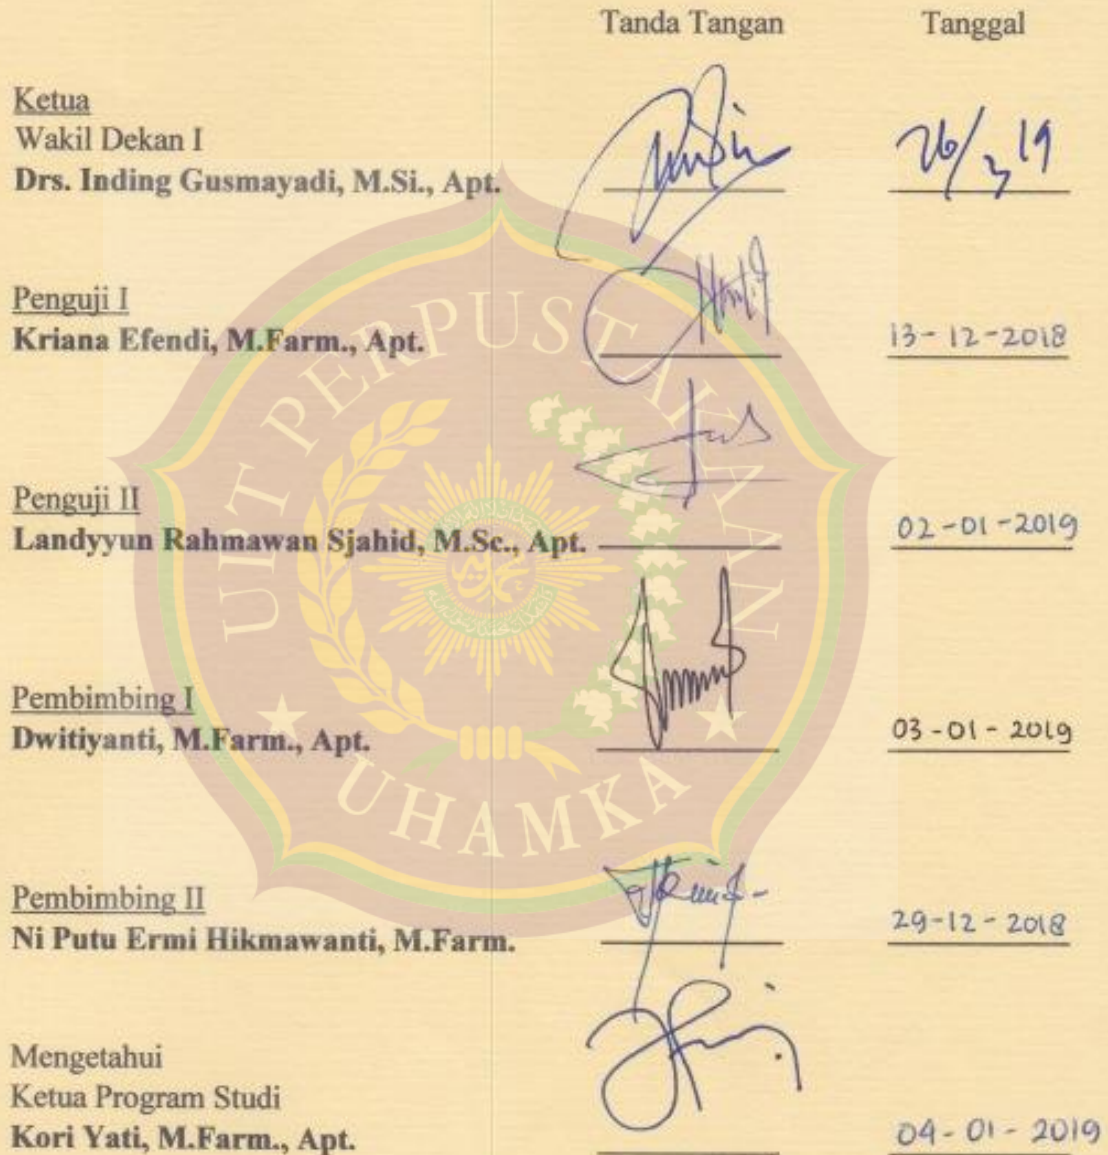 Tanda Tangan Tanggal
Ketua
Wakil Dekan I
Drs. Inding Gusmayadi, M.Si., Apt. 26/3 19
Penguji I
Kriana Efendi, M.Farm., Apt. 13-12-2018
Penguji II
Landyyun Rahmawan Sjahid, M.Sc., Apt. 02-01-2019
Pembimbing I
Dwitiyanti, M.Farm., Apt. 03-01-2019
Pembimbing II
Ni Putu Ermi Hikmawanti, M.Farm. 29-12-2018
Mengetahui
Ketua Program Studi
Kori Yati, M.Farm., Apt. 04-01-2019
UPT PERPUSTAKAAN
UHAMKA